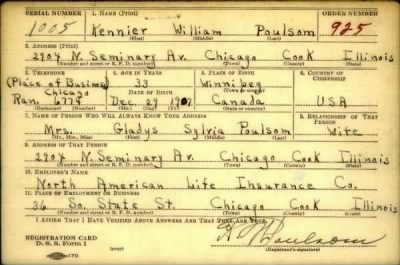 SERIAL NUMBER 1. NAME (Print) ORDER NUMBER
1005 Kennier William Poulsom 925
(First) (Middle) (Last)
2. ADDRESS (Print)
2904 N. Seminary Av. Chicago Cook Illinois
(Number and street or R. F. D. number) (Town) (County) (State)
3. TELEPHONE 4. AGE IN YEARS 5. PLACE OF BIRTH 6. COUNTRY OF CITIZENSHIP
(Place of Business) 33 Winnipeg
Chicago DATE OF BIRTH (Town or county)
Ran. 6774 Dec. 29 1907 Canada USA
(Exchange) (Number) (Mo.) (Day) (Yr.) (State or country)
7. NAME OF PERSON WHO WILL ALWAYS KNOW YOUR ADDRESS 8. RELATIONSHIP OF THAT PERSON
Mrs. Gladys Sylvia Poulsom Wife
(Mr., Mrs., Miss) (First) (Middle) (Last)
9. ADDRESS OF THAT PERSON
2904 N. Seminary Av. Chicago Cook Illinois
(Number and street or R. F. D. number) (Town) (County) (State)
10. EMPLOYER'S NAME
North American Life Insurance Co.
11. PLACE OF EMPLOYMENT OR BUSINESS
36 So. State St. Chicago Cook Illinois
(Number and street or R. F. D. number) (Town) (County) (State)
I AFFIRM THAT I HAVE VERIFIED ABOVE ANSWERS AND THAT THEY ARE TRUE.
REGISTRATION CARD
D. S. S. Form 1 (over) (Registrant's signature)